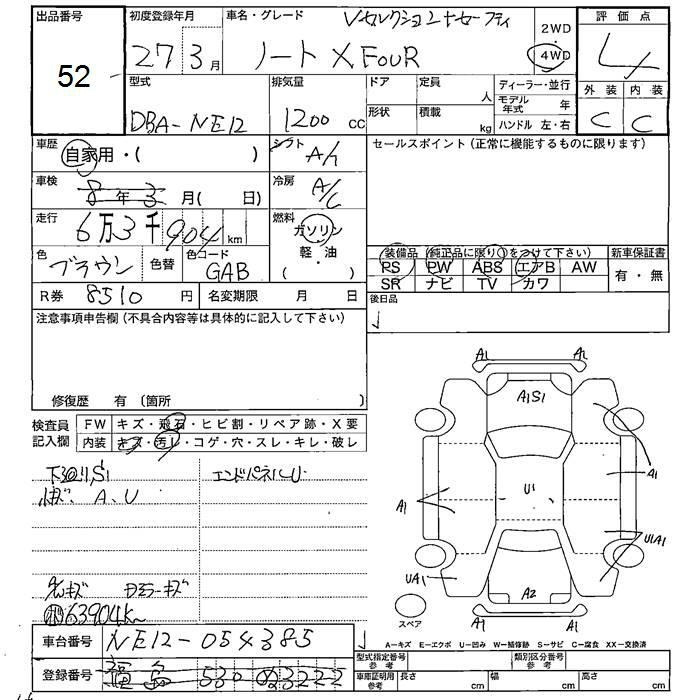 出品番号
52
初度登録年月
27 3月
車名・グレード
Vセレクション+セーフティ
ノート X FOUR
2WD
・
4WD
評価点
4
外装 内装
C C
型式
DBA-NE12
排気量
1200 cc
ドア
定員
人
形状
積載
kg
ディーラー・並行
モデル年式 年
ハンドル 左・右
車歴
自家用・( )
シフト
A/T
セールスポイント(正常に機能するものに限ります)
車検
8年3月( 日)
冷房
A/C
走行
6万3千904km
燃料
ガソリン
軽・油
( )
色
ブラウン
色替
色コード
GAB
装備品(純正品に限り○をつけて下さい)
新車保証書
PS PW ABS エアB AW
有・無
SR ナビ TV カワ
R券 8510円
名変期限 月 日
後日品
注意事項申告欄(不具合内容等は具体的に記入して下さい)
修復歴 有(箇所 )
検査員記入欄
FW キズ・飛石・ヒビ割・リペア跡・X要
内装 キズ・汚レ・コゲ・穴・スレ・キレ・破レ
下廻りS1
エンドパネルU
小キズ、A、U
63904km
A1 A1
A1S1
A1
A1
U1
U1A1
UA1
A2
スペア
A1 A1
車台番号 NE12-054385
A-キズ E-エクボ U-凹み W-補修跡 S-サビ C-腐食 XX-交換済
登録番号 福島 530 ぬ3222
型式指定番号参考
類別区分番号参考
車庫証明用参考
長さ cm
幅 cm
高さ cm